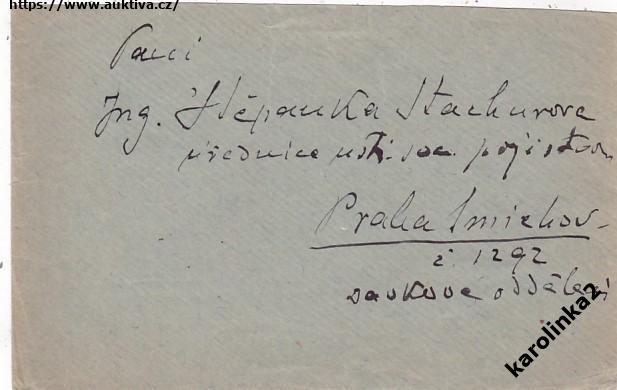 https://www.auktiva.cz/
Paní
Ing. Štěpanka Stachurova
úřednice ústř. soc. pojišťov.
Praha Smíchov-
č. 1292
dávkové oddělení
karolinka2